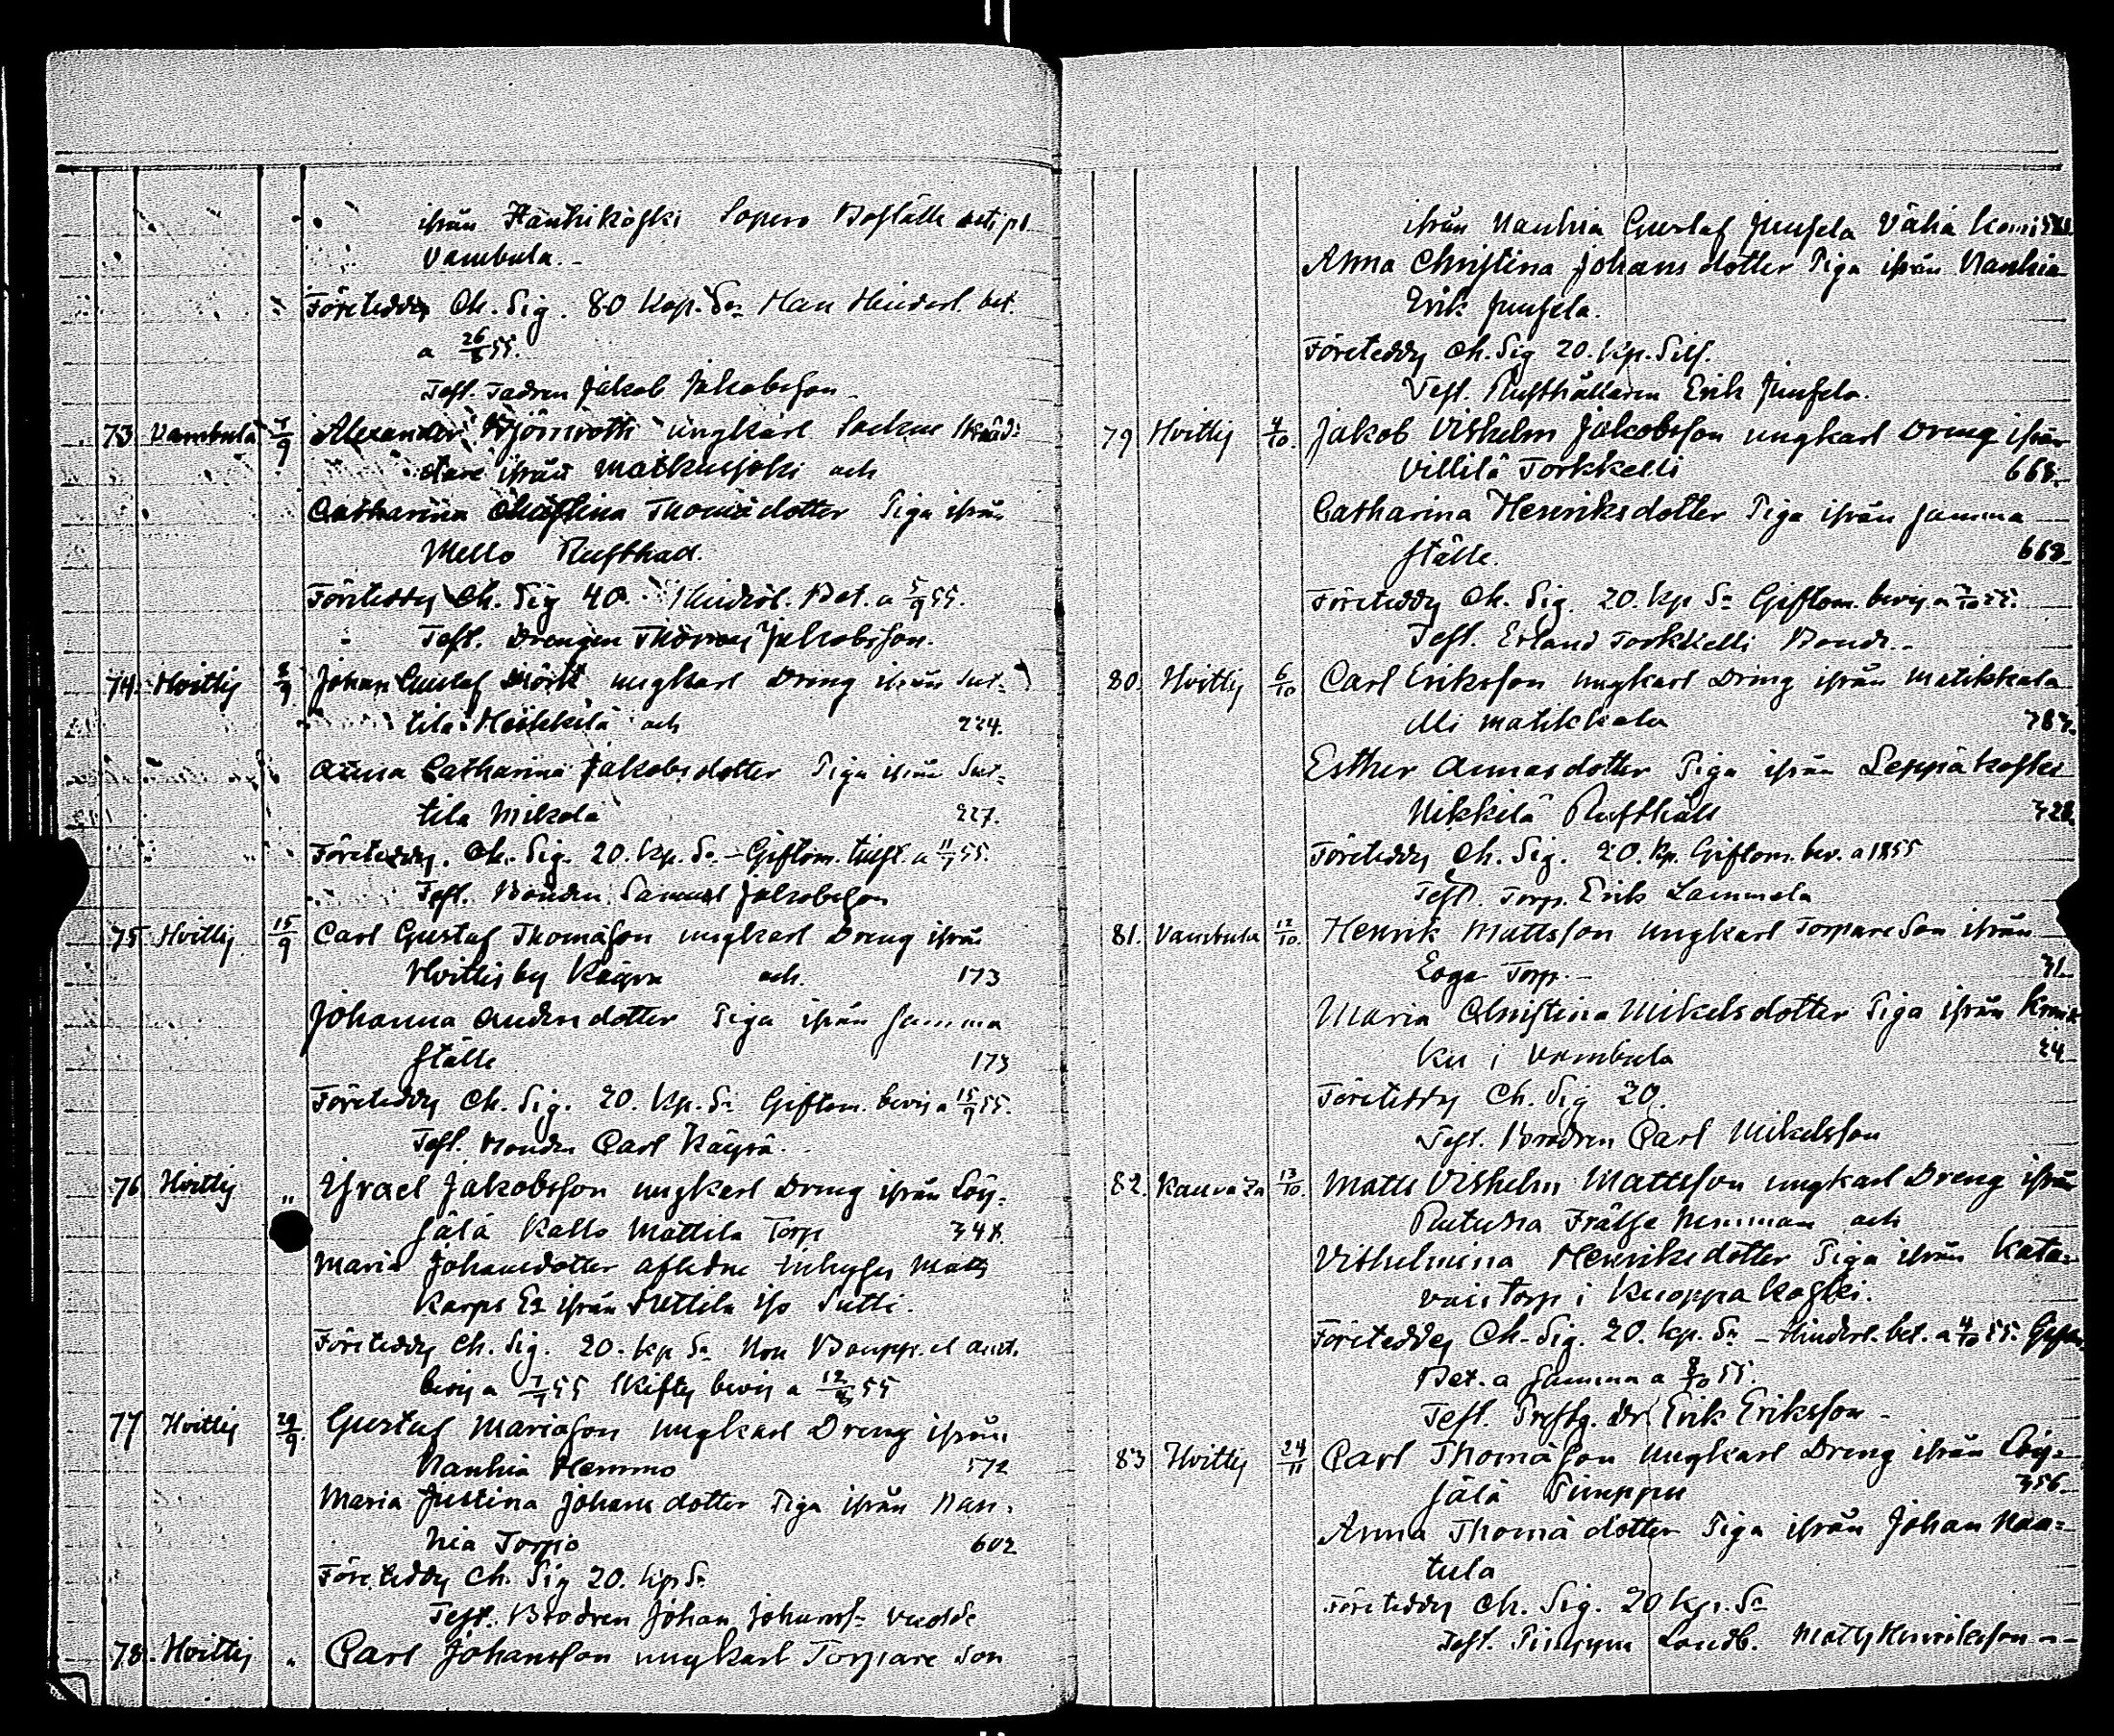 ifrån Hanhikoski Sopero Boställe
Vambula.-
Företeddes Ch. Sig. 80 Kop. Sr Man Hinderl. bet.
a 26/8 55.
Test. Fadren Jakob Jakobsson
73 Vambula 7/9 Alexander Björnroth ungkarl Socknesskräd-
dare ifrån Matkusjoki och
Catharina Christina Thomädotter Piga ifrån
Mello Rusthåll.
Företeddes Ch. Sig 40. Hinderl. Bet. a 5/9 55.
Test. Drengen Thomas Jakobsson.
74. Hvittis 8/9 Johan Gustaf Mört ungkarl Dreng ifrån Sut-
tila Heikkilä och 224.
Anna Catharina Jakobsdotter Piga ifrån Sut-
tila Mikola 227.
Företeddes. Ch. Sig. 20. Kp. Sr - Giftom. tillst. a 11/7 55.
Test. Bonden Samuel Jakobsson
75 Hvittis 15/9 Carl Gustaf Thomäson ungkarl Dreng ifrån
Hvittis by Käyrä och. 173
Johanna Andersdotter Piga ifrån samma
ställe 173
Företeddes Ch. Sig. 20. Kp. Sr Giftom. bevis a 15/9 55.
Test. Bonden Carl Käyrä.
76 Hvittis „ Israel Jakobsson ungkarl Dreng ifrån Löy-
sälä Kallo Mattila Torp 348.
Maria Johansdotter afledne Inhyses Matts
Karps Ea ifrån Suttila Iso Sutti.
Företeddes Ch. Sig. 20. Kp Sr Hon Boupp. et avit.
bevis a 7/7 55 Skiftes bevis a 12/8 55
77 Hvittis 29/9. Gustaf Mariason ungkarl Dreng ifrån
Nanhia Hemmo 572
Maria Justina Johansdotter Piga ifrån Nan-
hia Torpo 602
Företeddes Ch. Sig 20. Kp Sr.
Test. Brodren Johan Johanss-
78. Hvittis „ Carl Johansson ungkarl Torpare Son
ifrån Nanhia Gustaf Juusela Vähä Komi
Anna Christina Johansdotter Piga ifrån Nanhia
Erik Juusela.
Företeddes Ch. Sig 20. Kp. Silf.
Test. Rusthållaren Erik Juusela.
79 Hvittis 4/10. Jakob Vilhelm Jakobsson ungkarl Dreng ifrån
Villilä Torkkelli 668.
Catharina Henriksdotter Piga ifrån samma
ställe. 668
Företeddes Ch. Sig. 20. Kp Sr Giftom. bevis. a 7/10 55.
Test. Erland Torkkelli Bonde.-
80. Hvittis 6/10 Carl Eriksson ungkarl Dreng ifrån Matikkala
Uli Matikkala 787.
Esther Annasdotter Piga ifrån Leppäkoski
Nikkilä Rusthåll 328.
Företeddes Ch. Sig. 20. Kp. Giftom. bev. a 1855
Test. Torp. Erik Lammela
81. Vambula 12/10. Henrik Mattsson ungkarl Torpare Son ifrån
Loga Torp.- 31
Maria Christina Mikelsdotter Piga ifrån Kruik
ku i Vambula 24
Företeddes Ch. Sig 20.
Test. Brodren Carl Mikelsson
82. Kauvatsa 13/10. Matts Vilhelm Mattsson ungkarl Dreng ifrån
Rutuna Frälse Nemman och
Vilhelmina Henriksdotter Piga ifrån Kata-
vais Torp i Kuoppakoski.
Företeddes Ch. Sig. 20. Kp. Sr - Hinderl. bet. a 4/10 55. Giftm.
Bet. a samma a 8/10 55.
Test. Prestg. Dr Erik Eriksson -
83 Hvittis 24/11 Carl Thomäson ungkarl Dreng ifrån Löy-
sälä Pimppu 356.
Anna Thomädotter Piga ifrån Johan Naa-
tula
Företeddes Ch. Sig. 20 Kp. Sr
Test. Pimppu Landb. Matts Henriksson -